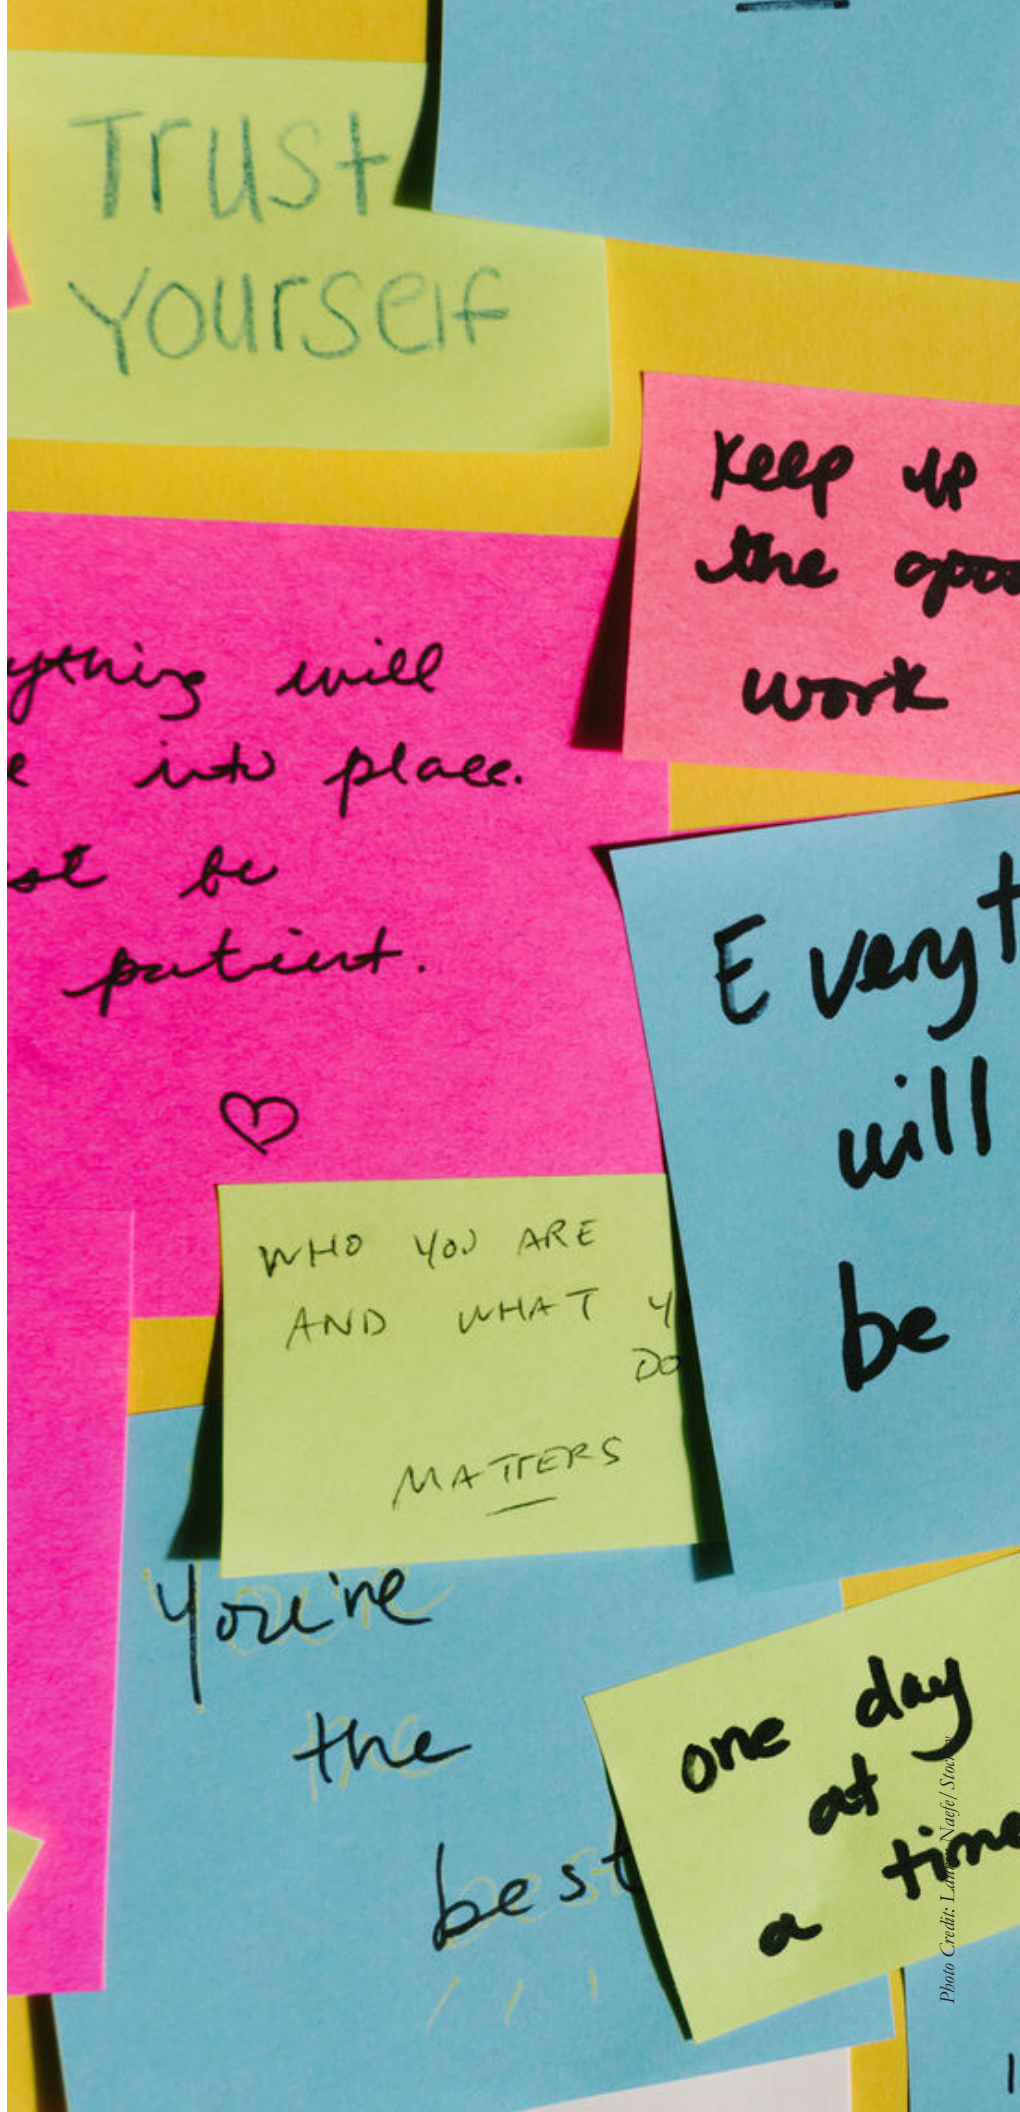 Trust
Yourself
Keep up
the goo
work
ything will
e into place.
st be
patient.
Everyt
will
be
WHO YOU ARE
AND WHAT Y
DO
MATTERS
You're
the
best
one day
at
a time
Photo Credit: Lauren Naefe/ Stocksy